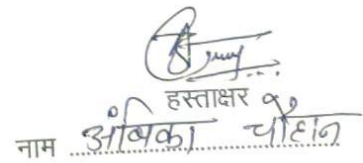 हस्ताक्षर
नाम अंबिका चौहान